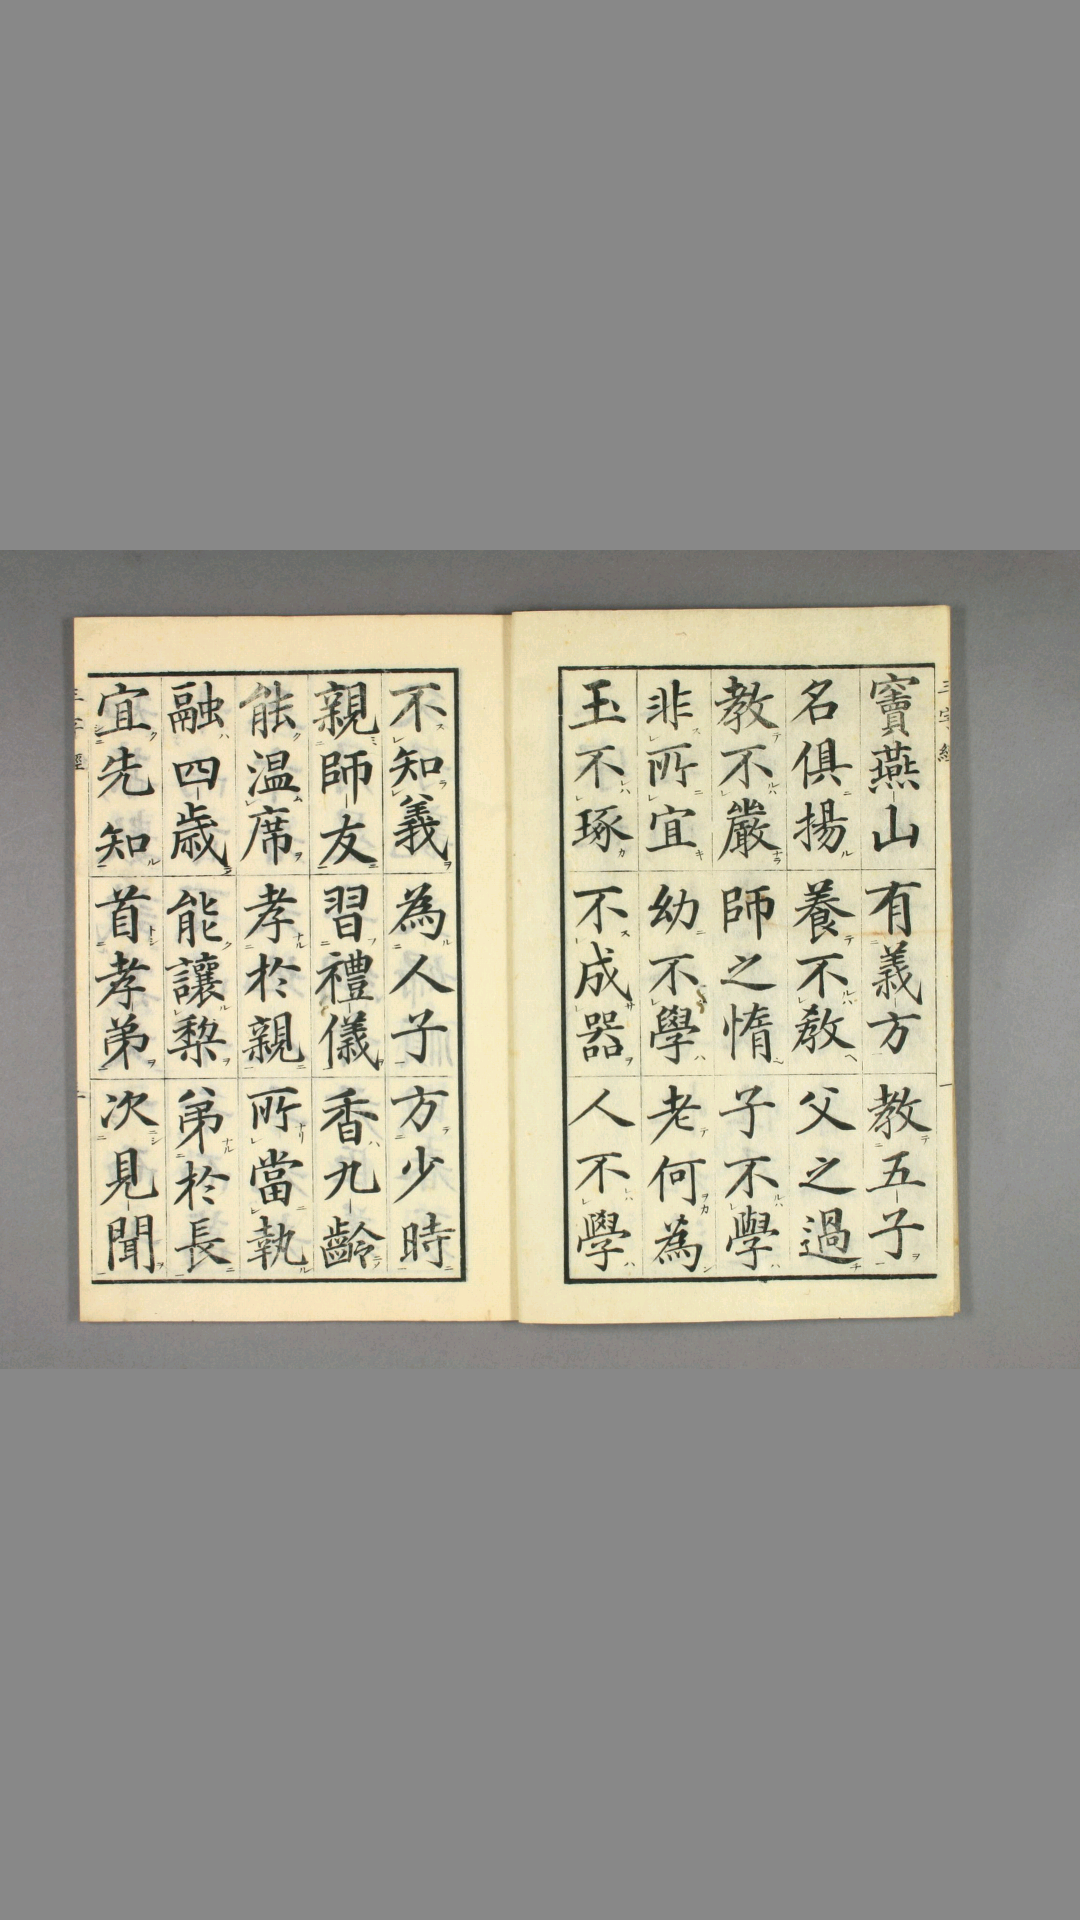 竇燕山有義方教五子
名俱揚養不教父之過
教不嚴師之惰子不學
非所宜幼不學老何為
玉不琢不成器人不學
不知義為人子方少時
親師友習禮儀香九齡
能温席孝於親所當執
融四歳能讓棃弟於長
宜先知首孝弟次見聞